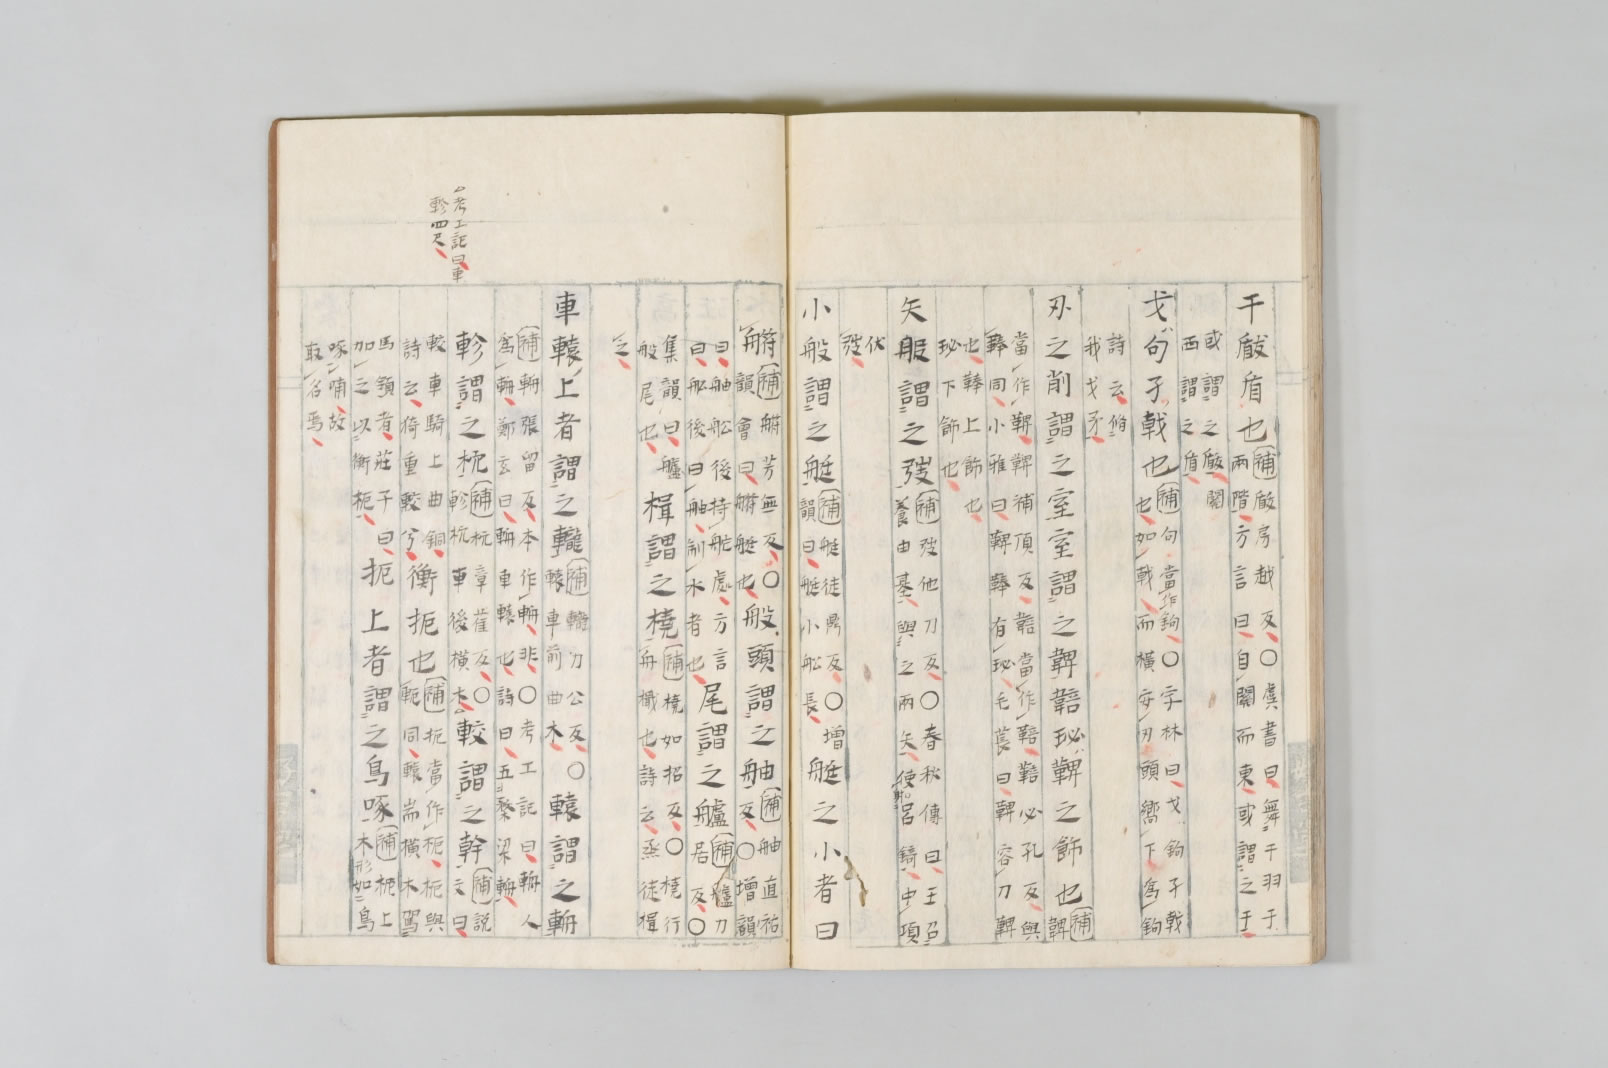 干瞂盾也補瞂房越反〇虞書曰舞干羽于
兩階方言曰自關而東或謂之干
或謂之瞂關
西謂之盾
戈句孑戟也補句當作鉤〇字林曰戈鉤孑戟
也如戟而橫安刃頭嚮下為鉤
詩云脩
我戈矛
刄之削謂之室室謂之鞞鞛珌鞞之飾也補
鞞
當作鞞鞞補頂反鞛當作鞛鞛必孔反與
琫同小雅曰鞞琫有珌毛萇曰鞞容刀鞞
也琫上飾也
珌下飾也
矢服謂之弢補弢他刀反〇春秋傳曰王召
養由基與之兩矢使射呂錡中項
伏
弢
小船謂之艇補艇徒鼎反〇增
韻曰艇小船長艇之小者曰
艀補艀芳無反〇
韻會曰艀艇也船頭謂之舳補舳直祐
反〇增韻
曰舳船後持舵處方言
曰船後曰舳制水者也尾謂之艫補艫力
居反〇
集韻曰艫
船尾也楫謂之橈補橈如招反〇橈行
舟檝也詩云烝徒楫
之
車轅上者謂之補力公反〇
轅車前曲木轅謂之輈
補輈張留反本作輈非〇考工記曰輈人
為輈鄭玄曰輈車轅也詩曰五楘梁輈
考工記曰車
軫四尺
軫謂之枕補枕章荏反〇
軫枕車後橫木較謂之幹補說
文曰
較車騎上曲銅
詩云猗重較兮衡扼也補扼當作軛軛與
軶同轅耑橫木駕
馬領者莊子曰
加之以衡扼扼上者謂之烏啄補軛上
木形如烏
啄咮故
取名焉